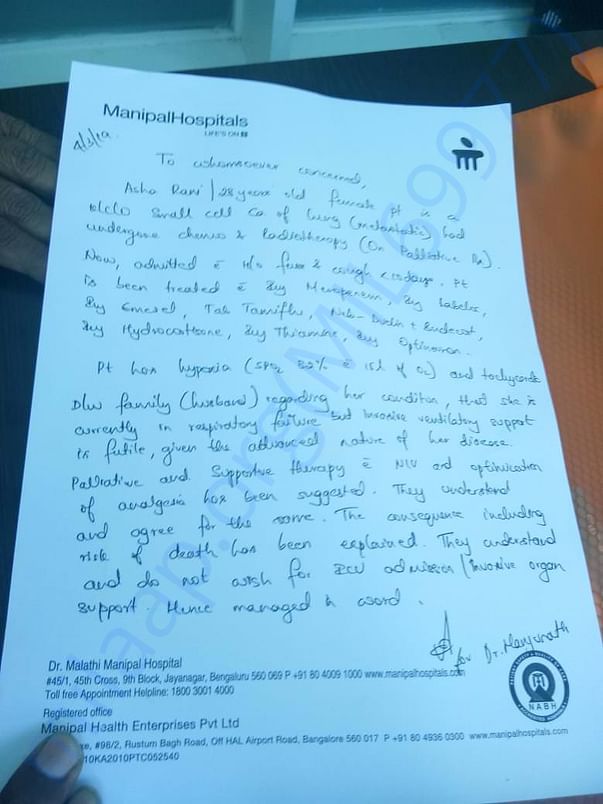 ManipalHospitals
LIFE'S ON
To whomsoever concerned,
Asha Rani / 28 years old female pt is a
k/c/o Small cell Ca of lung (metastatic) had
undergone chemo & Radiotherapy (On Palliative Rx).
Now, admitted c̄ H/o fever & cough <10days. Pt
is been treated c̄ Inj Meropenem, Inj Labelol,
Inj Emeset, Tab Tamiflu, Neb- Duolin + Budecort,
Inj Hydrocortisone, Inj Thiamine, Inj Optineuron.
Pt has hypoxia (SPO2 82% c̄ 15l of O2) and tachycardia
D/w family (husband) regarding her condition, that she is
currently in respiratory failure but Invasive ventilatory support
is futile, given the advanced nature of her disease.
Palliative and Supportive therapy c̄ NIV and optimisation
of analgesia has been suggested. They understand
and agree for the same. The consequence including
risk of death has been explained. They understand
and do not wish for ICU admission / Invasive organ
support. Hence managed in ward.
for Dr. Manjunath
Dr. Malathi Manipal Hospital
#45/1, 45th Cross, 9th Block, Jayanagar, Bengaluru 560 069 P +91 80 4009 1000 www.manipalhospitals.com
Toll free Appointment Helpline: 1800 3001 4000
NABH
Registered office
Manipal Health Enterprises Pvt Ltd
#98/2, Rustum Bagh Road, Off HAL Airport Road, Bangalore 560 017 P +91 80 4936 0300 www.manipalhospitals.com
10KA2010PTC052540